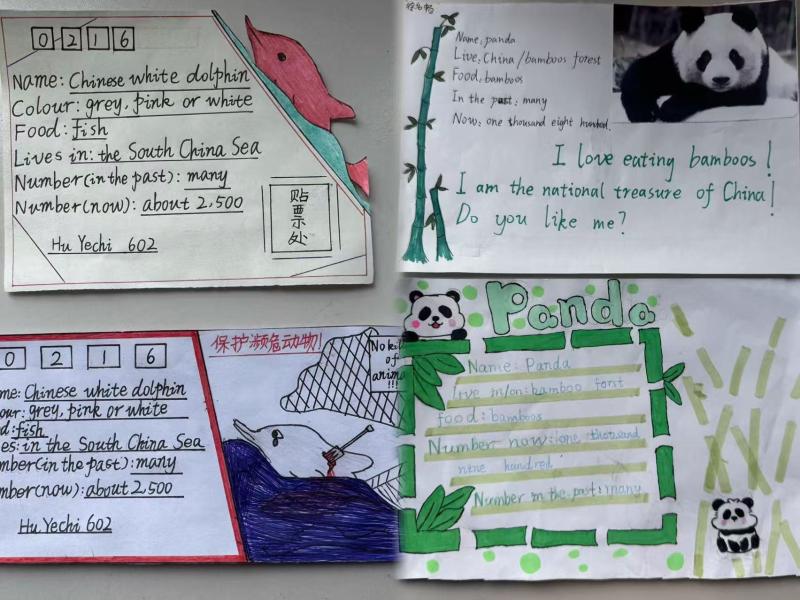 0 2 1 6
Name: Chinese white dolphin
Colour: grey, pink or white
Food: fish
Lives in: the South China Sea
Number(in the past): many
Number(now): about 2,500
贴票处
Hu Yechi 602
Name: panda
Live: China / bamboos forest
Food: bamboos
In the past: many
Now: one thousand eight hundred.
I love eating bamboos!
I am the national treasure of China!
Do you like me?
0 2 1 6
me: Chinese white dolphin
our: grey, pink or white
d: fish
es: in the South China Sea
mber(in the past): many
mber(now): about 2,500
Hu Yechi 602
保护濒危动物!
No kil
of
anima
!!!
Panda
Name: Panda
live in/on: bamboo forst
food: bamboos
Number now: one thousand
nine hundred
Number in the past: many